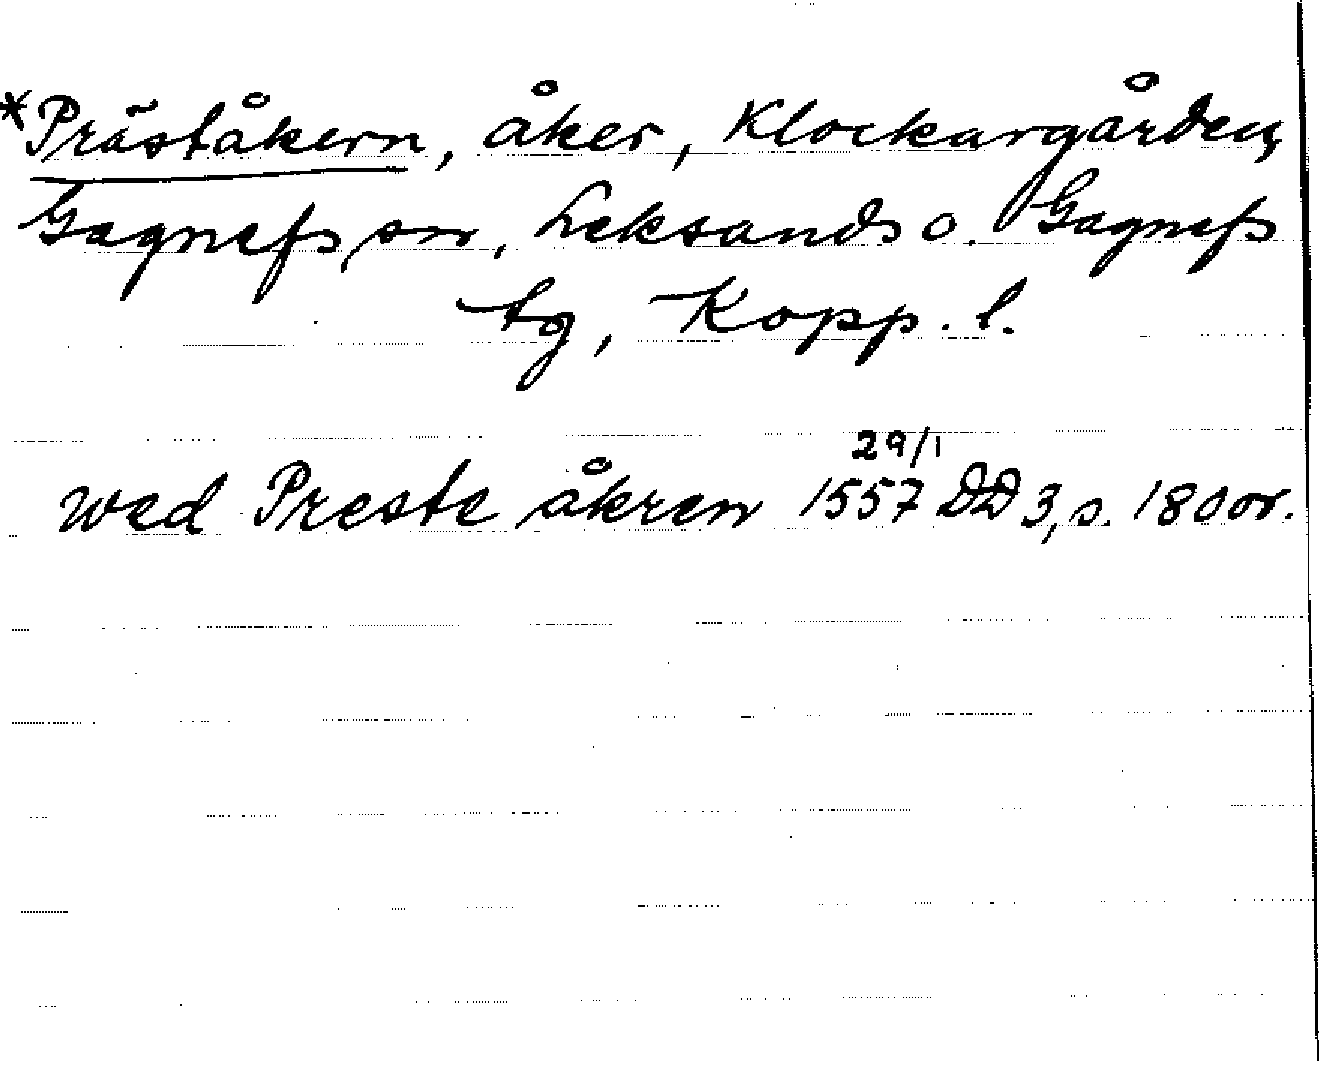 *Prästäkern, åker, Klockargården,
Gagnefs sn, Leksands o. Gagnefs
tg, Kopp. l.
29/1
wed Preste åkren 1557 DD 3, s. 180 or.